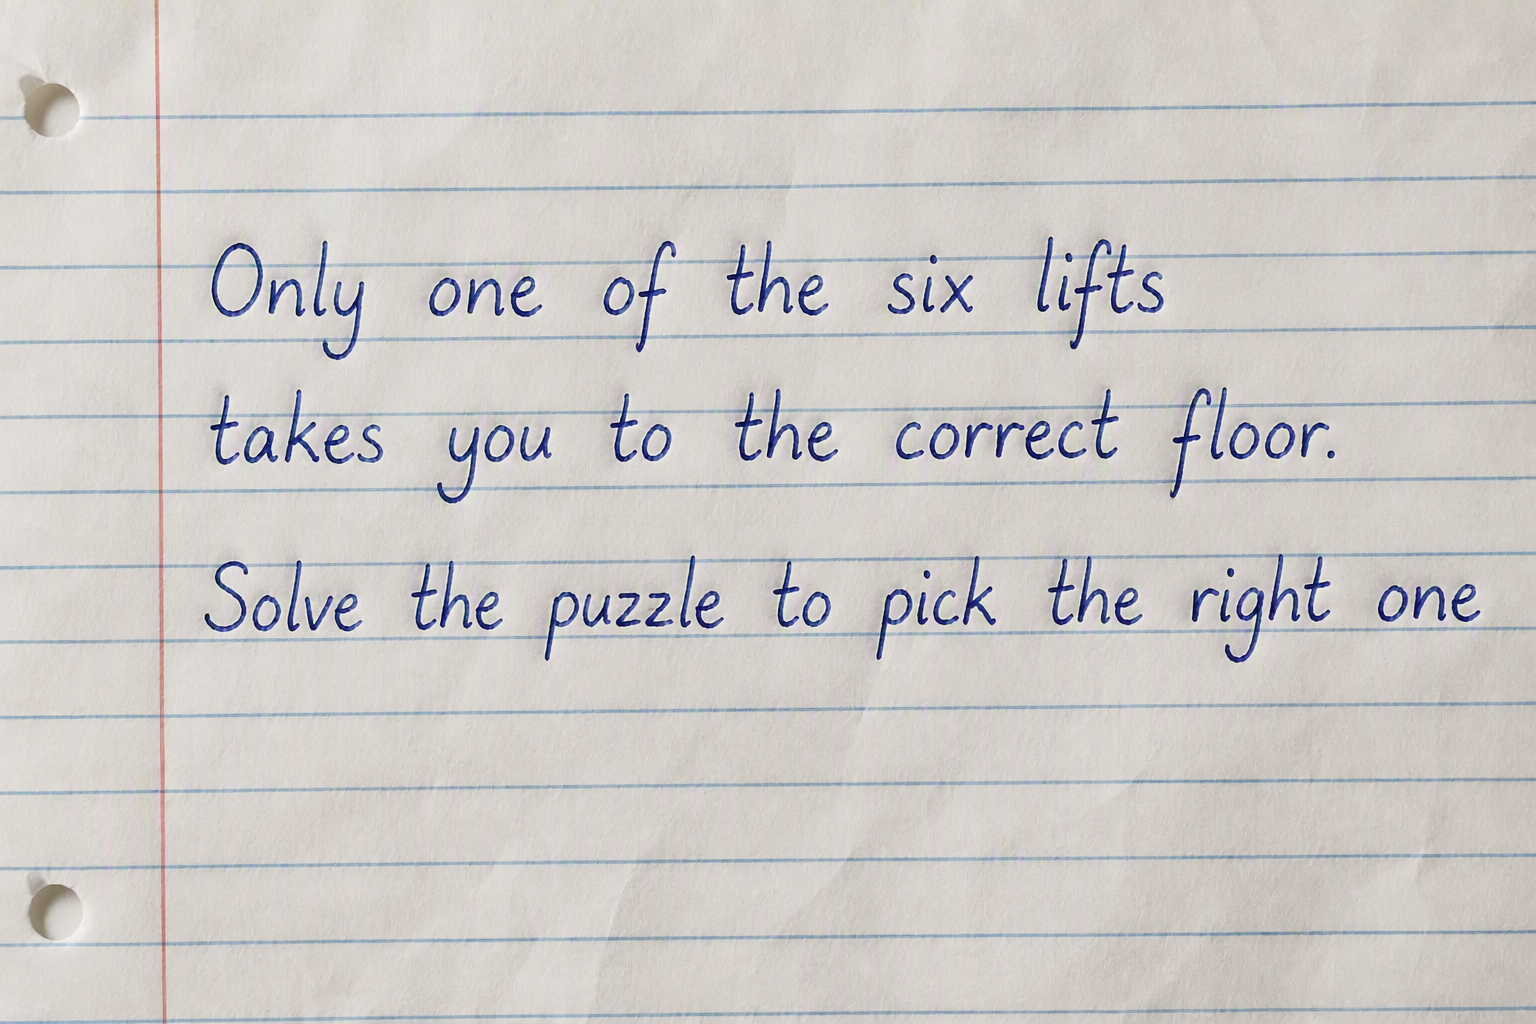 Only one of the six lifts
takes you to the correct floor.
Solve the puzzle to pick the right one